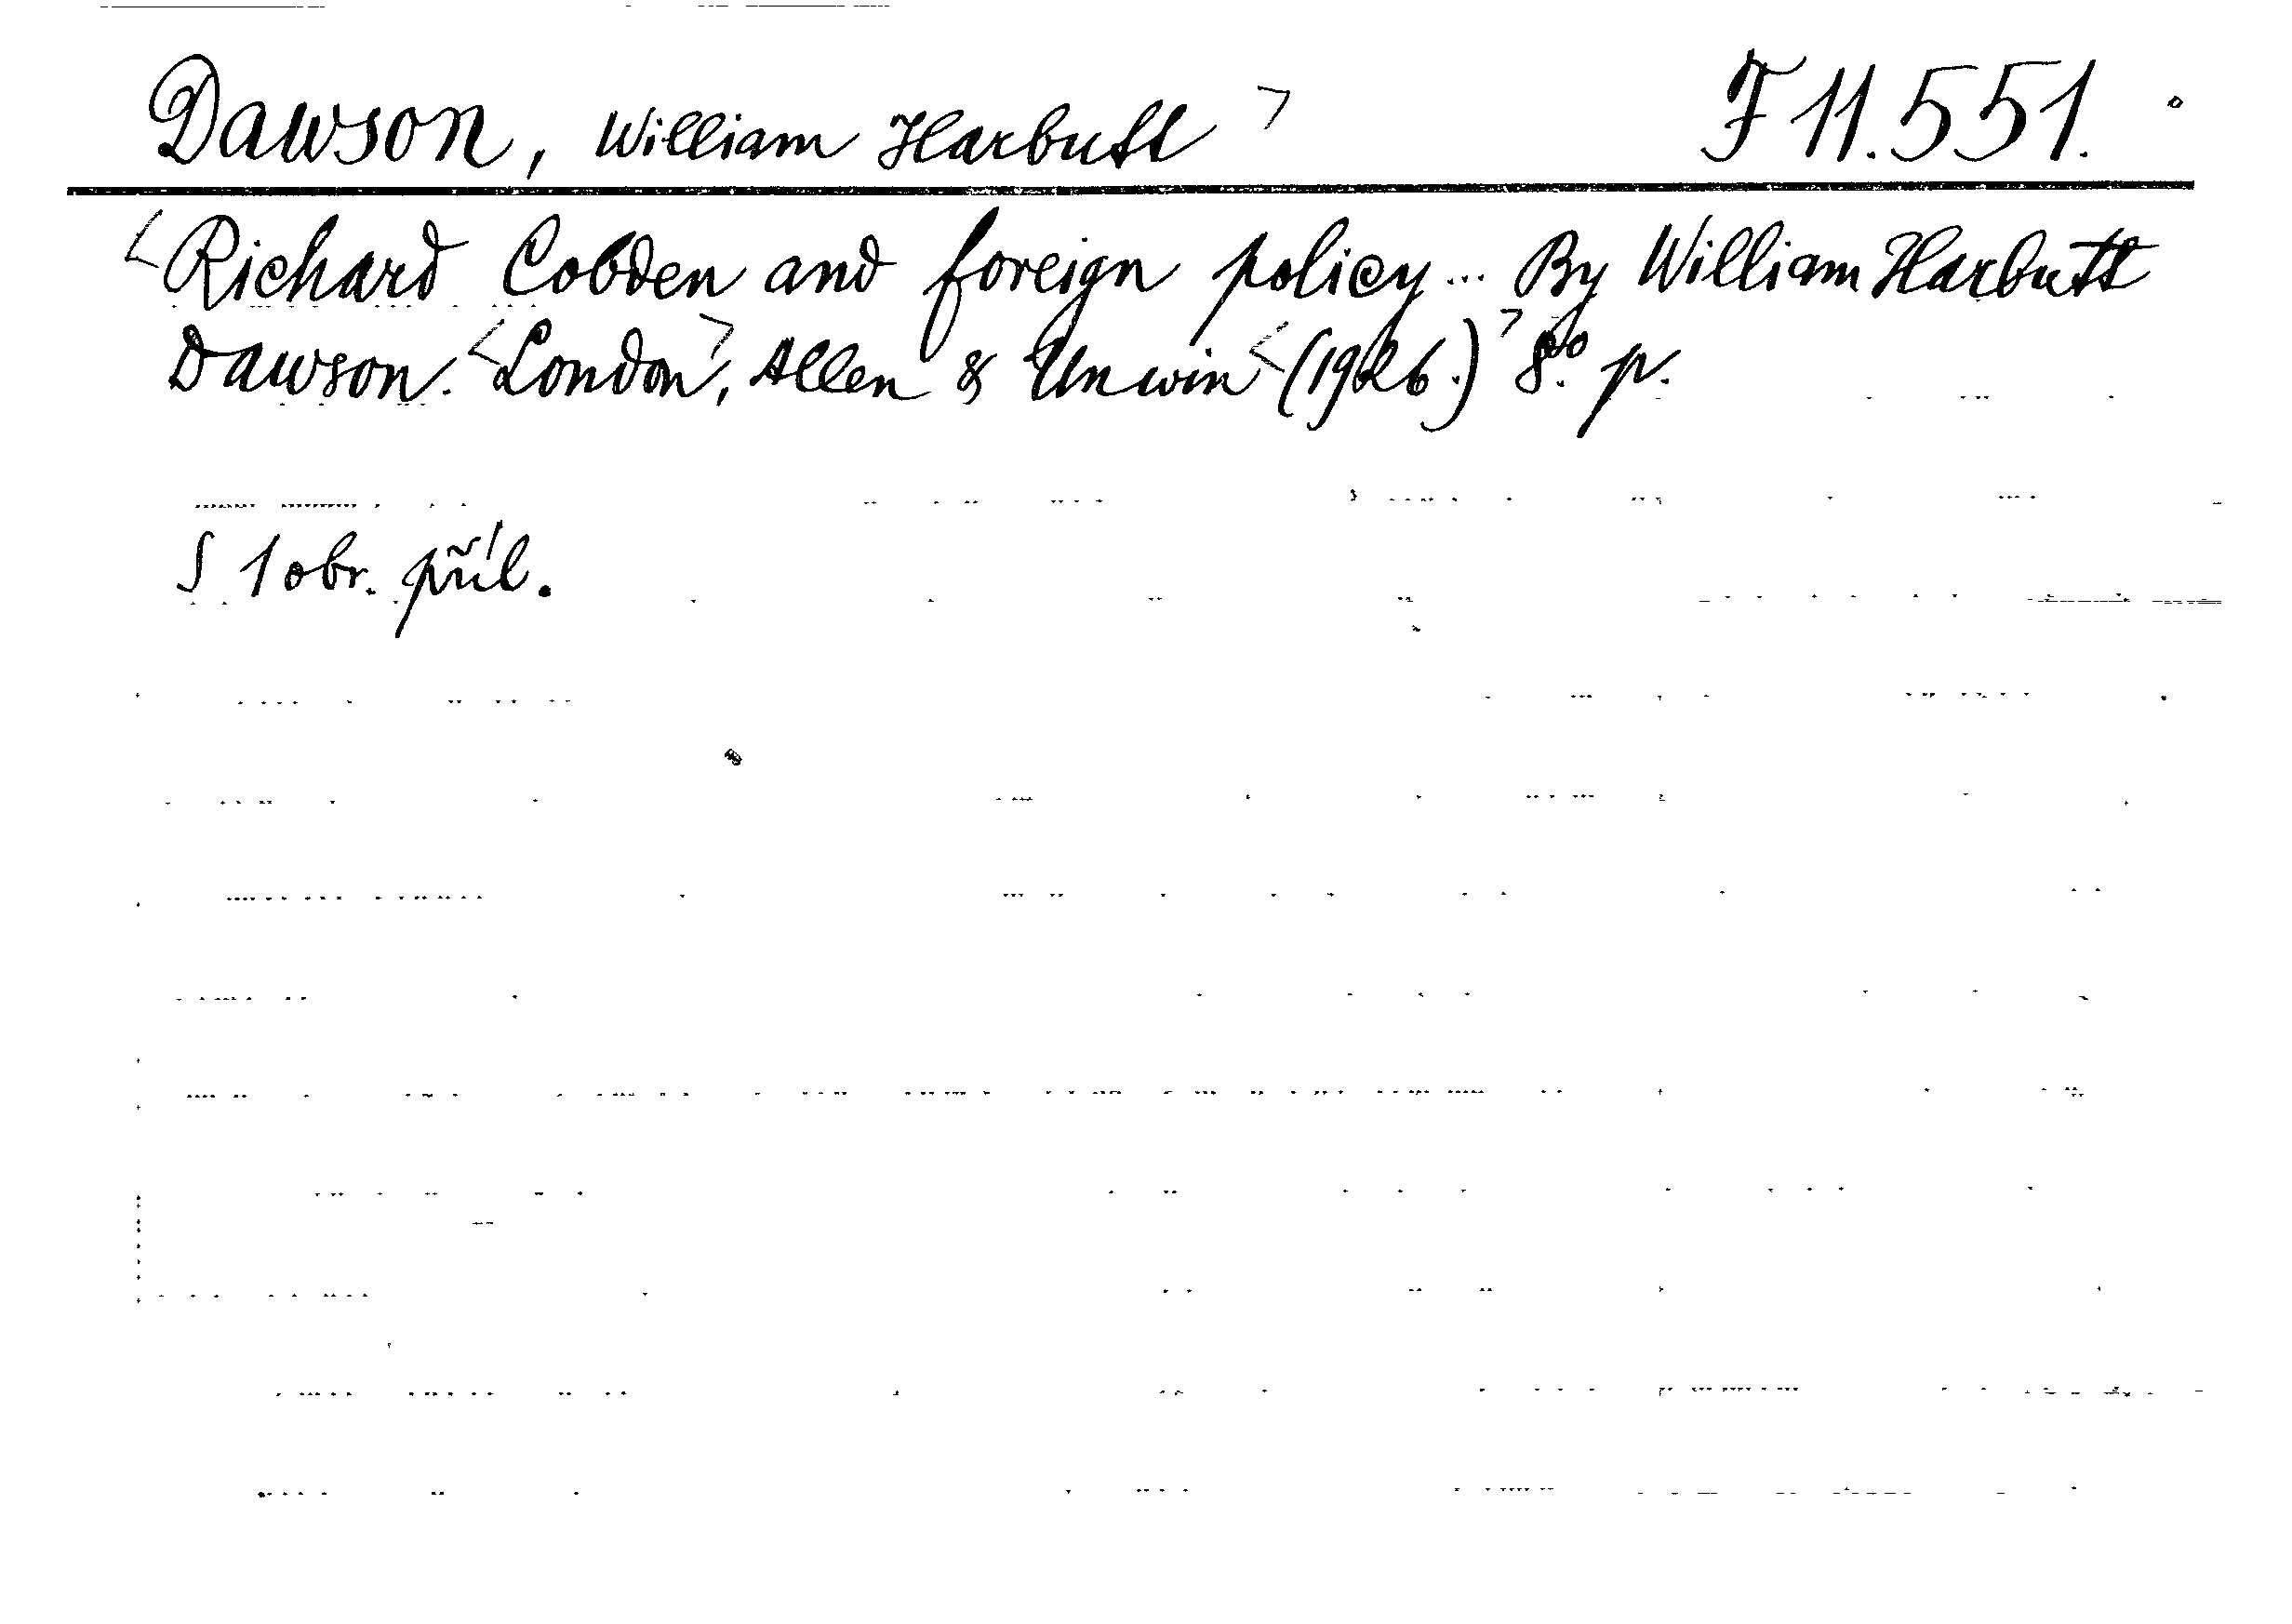 Dawson, William Harbutt > F 11.551.
<Richard Cobden and foreign policy... By William Harbutt
Dawson. <London>, Allen & Unwin <(1926.)> 8° p.
S 1 obr. příl.